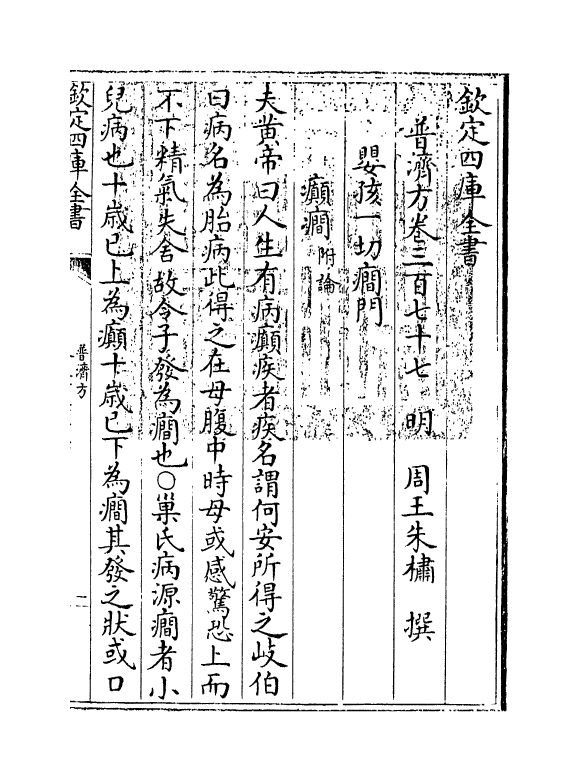 欽定四庫全書
普濟方卷三百七十七 明 周王朱橚 撰
嬰孩一切癎門
癲癎附論
夫黄帝曰人生有病癲疾者疾名謂何安所得之岐伯
曰病名為胎病此得之在母腹中時母或感驚恐上而
不下精氣失舍故令子發為癎也○巢氏病源癎者小
兒病也十歳已上為癲十歳已下為癎其發之狀或口
欽定四庫全書
普濟方